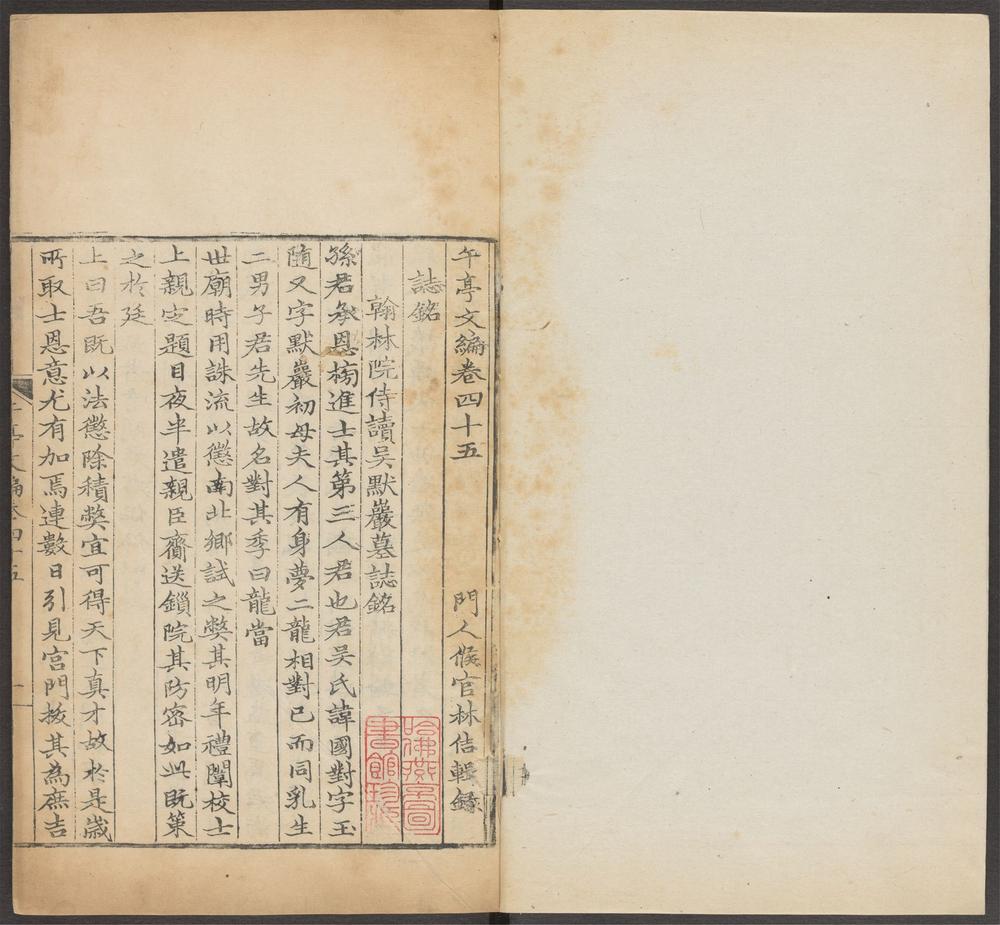 午亭文編卷四十五 門人候官林佶輯錄
誌銘
翰林院侍讀吳默巖墓誌銘
孫君承恩榜進士其第三人君也君吳氏諱國對字玉
隨又字默巖初母夫人有身夢二龍相對已而同乳生
二男子君先生故名對其季曰龍當
世廟時用誅流以懲南北鄉試之弊其明年禮闈校士
上親定題目夜半遣親臣齎送鎖院其防密如此既策
之於廷
上曰吾既以法懲除積弊宜可得天下真才故於是歲
所取士恩意尤有加焉連數日引見宮門拔其為庶吉
午亭文編卷四十五 一
哈佛燕京圖
書館珍藏